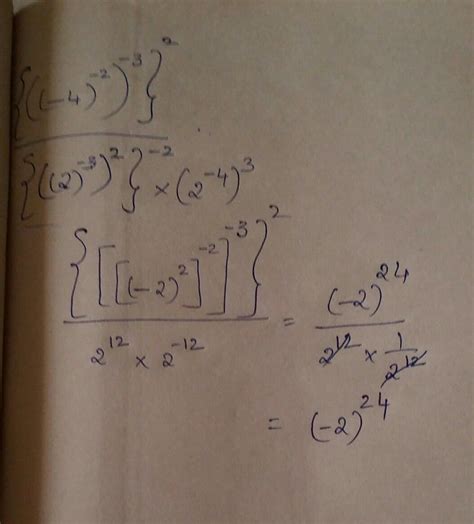 {((-4)^-2)^-3}^2
{((2)^-3)^2}^-2 × (2^-4)^3
{[[(-2)^2]^-2]^-3}^2 = (-2)^24
2^12 × 2^-12   2^12 × 1/2^12
= (-2)^24